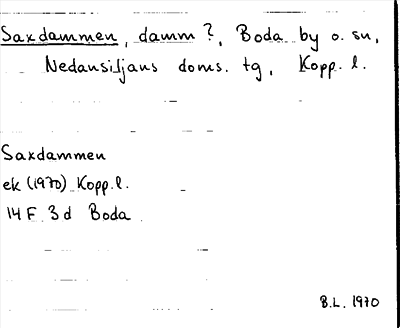 Saxdammen, damm?, Boda by o. sn,
Nedansiljans doms. tg, Kopp. l.
Saxdammen
ek (1970) Kopp. l.
14 F 3 d Boda
B.L. 1970